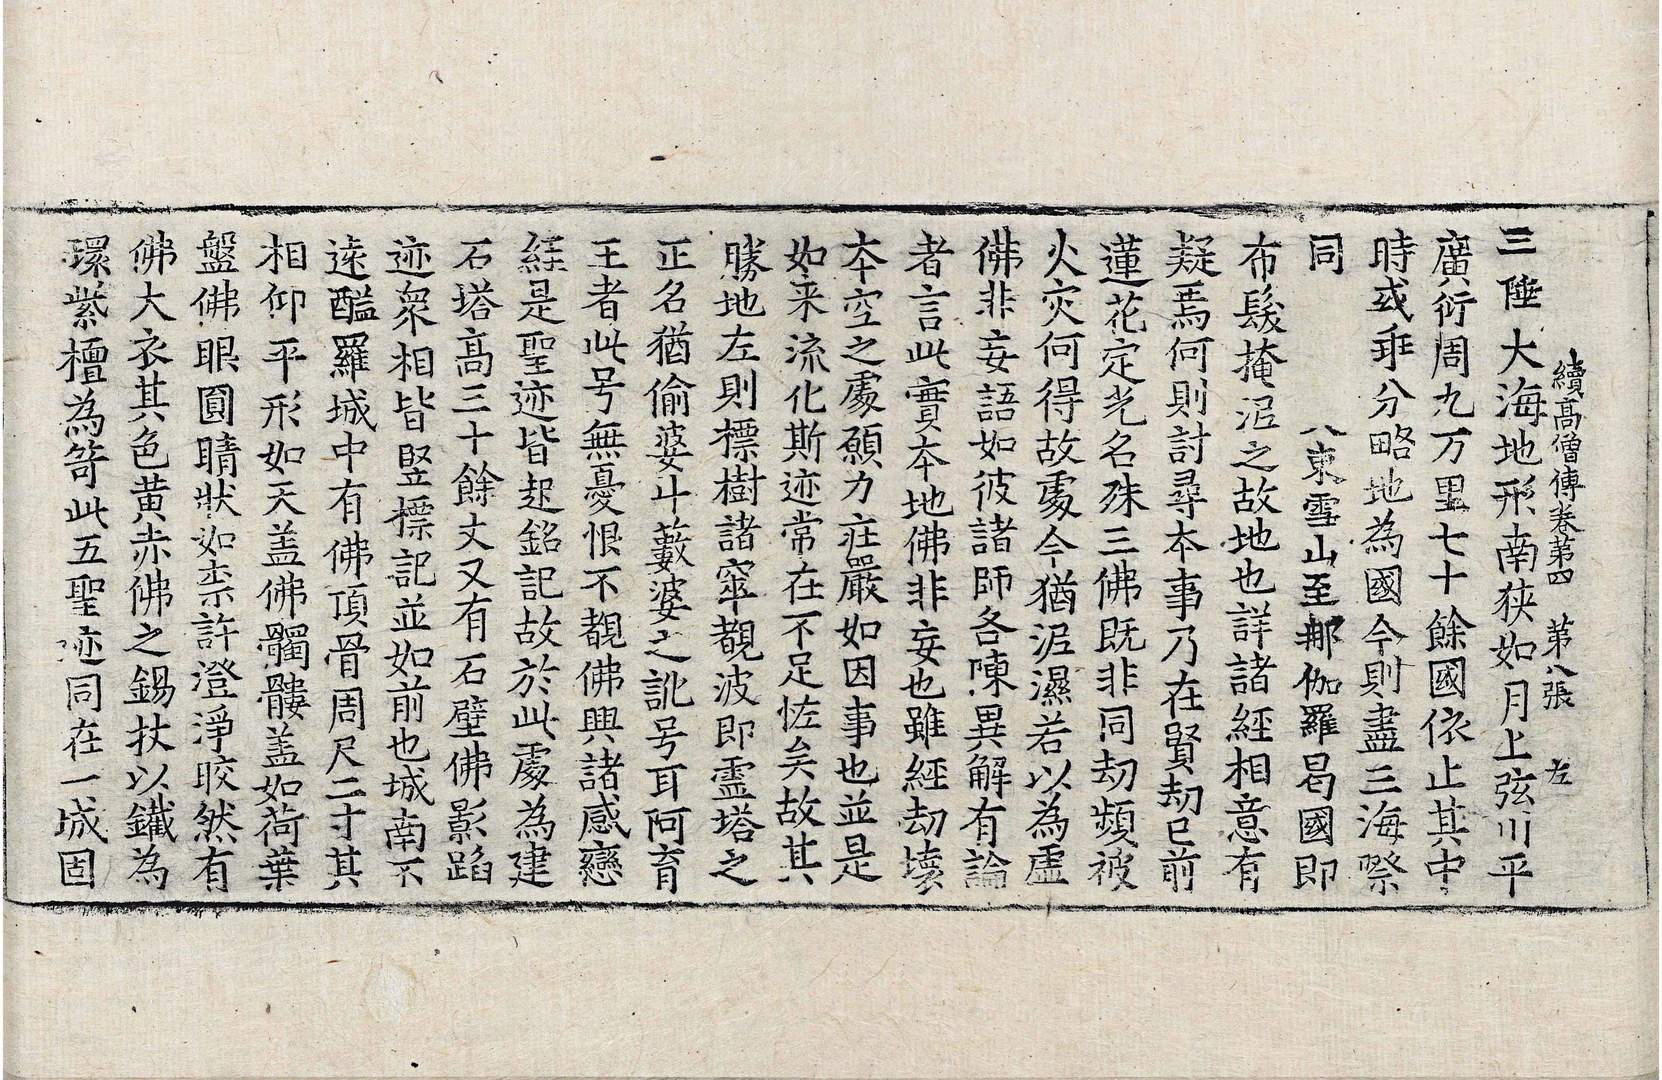 續高僧傳卷第四 第八張 左
三陲大海地形南狹如月上弦川平
廣衍周九万里七十餘國依止其中
時或乖分略地為國今則盡三海際
同 八東雪山至那伽羅曷國即
布髮掩泥之故地也詳諸經相意有
疑焉何則討尋本事乃在賢劫已前
蓮花定光名殊三佛既非同劫頻被
火灾何得故處今猶泥濕若以為虛
佛非妄語如彼諸師各陳異解有論
者言此實本地佛非妄也雖經劫壞
本空之處願力莊嚴如因事也並是
如来流化斯迹常在不足怪矣故其
勝地左則標樹諸窣覩波即靈塔之
正名猶偷婆斗藪婆之訛号耳阿育
王者此号無憂恨不覩佛興諸感戀
絰是聖迹皆起銘記故於此處為建
石塔高三十餘丈又有石壁佛影蹈
迹衆相皆竪標記並如前也城南不
遠醯羅城中有佛頂骨周尺二寸其
相仰平形如天盖佛髑髏盖如荷葉
盤佛眼圓睛狀如柰許澄淨皎然有
佛大衣其色黄赤佛之錫杖以鐵為
環紫檀為笴此五聖迹同在一城固